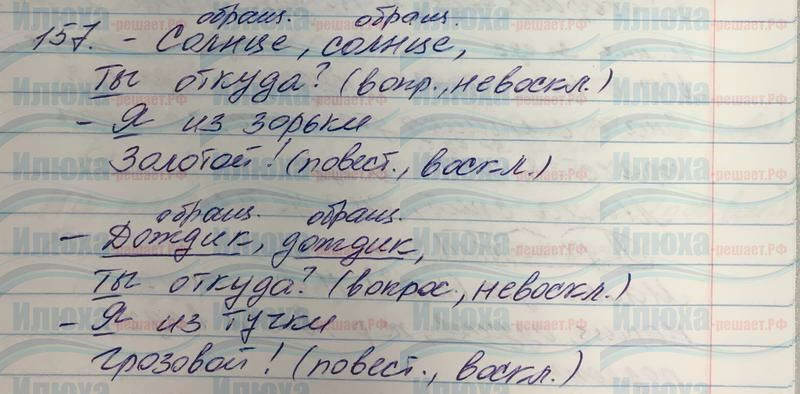 обращ. обращ.
157. - Солнце, солнце,
Ты откуда? (вопр., невоскл.)
- Я из зорьки
Золотой! (повест., воскл.)
обращ. обращ.
- Дождик, дождик,
Ты откуда? (вопрос., невоскл.)
- Я из тучки
Грозовой! (повест., воскл.)